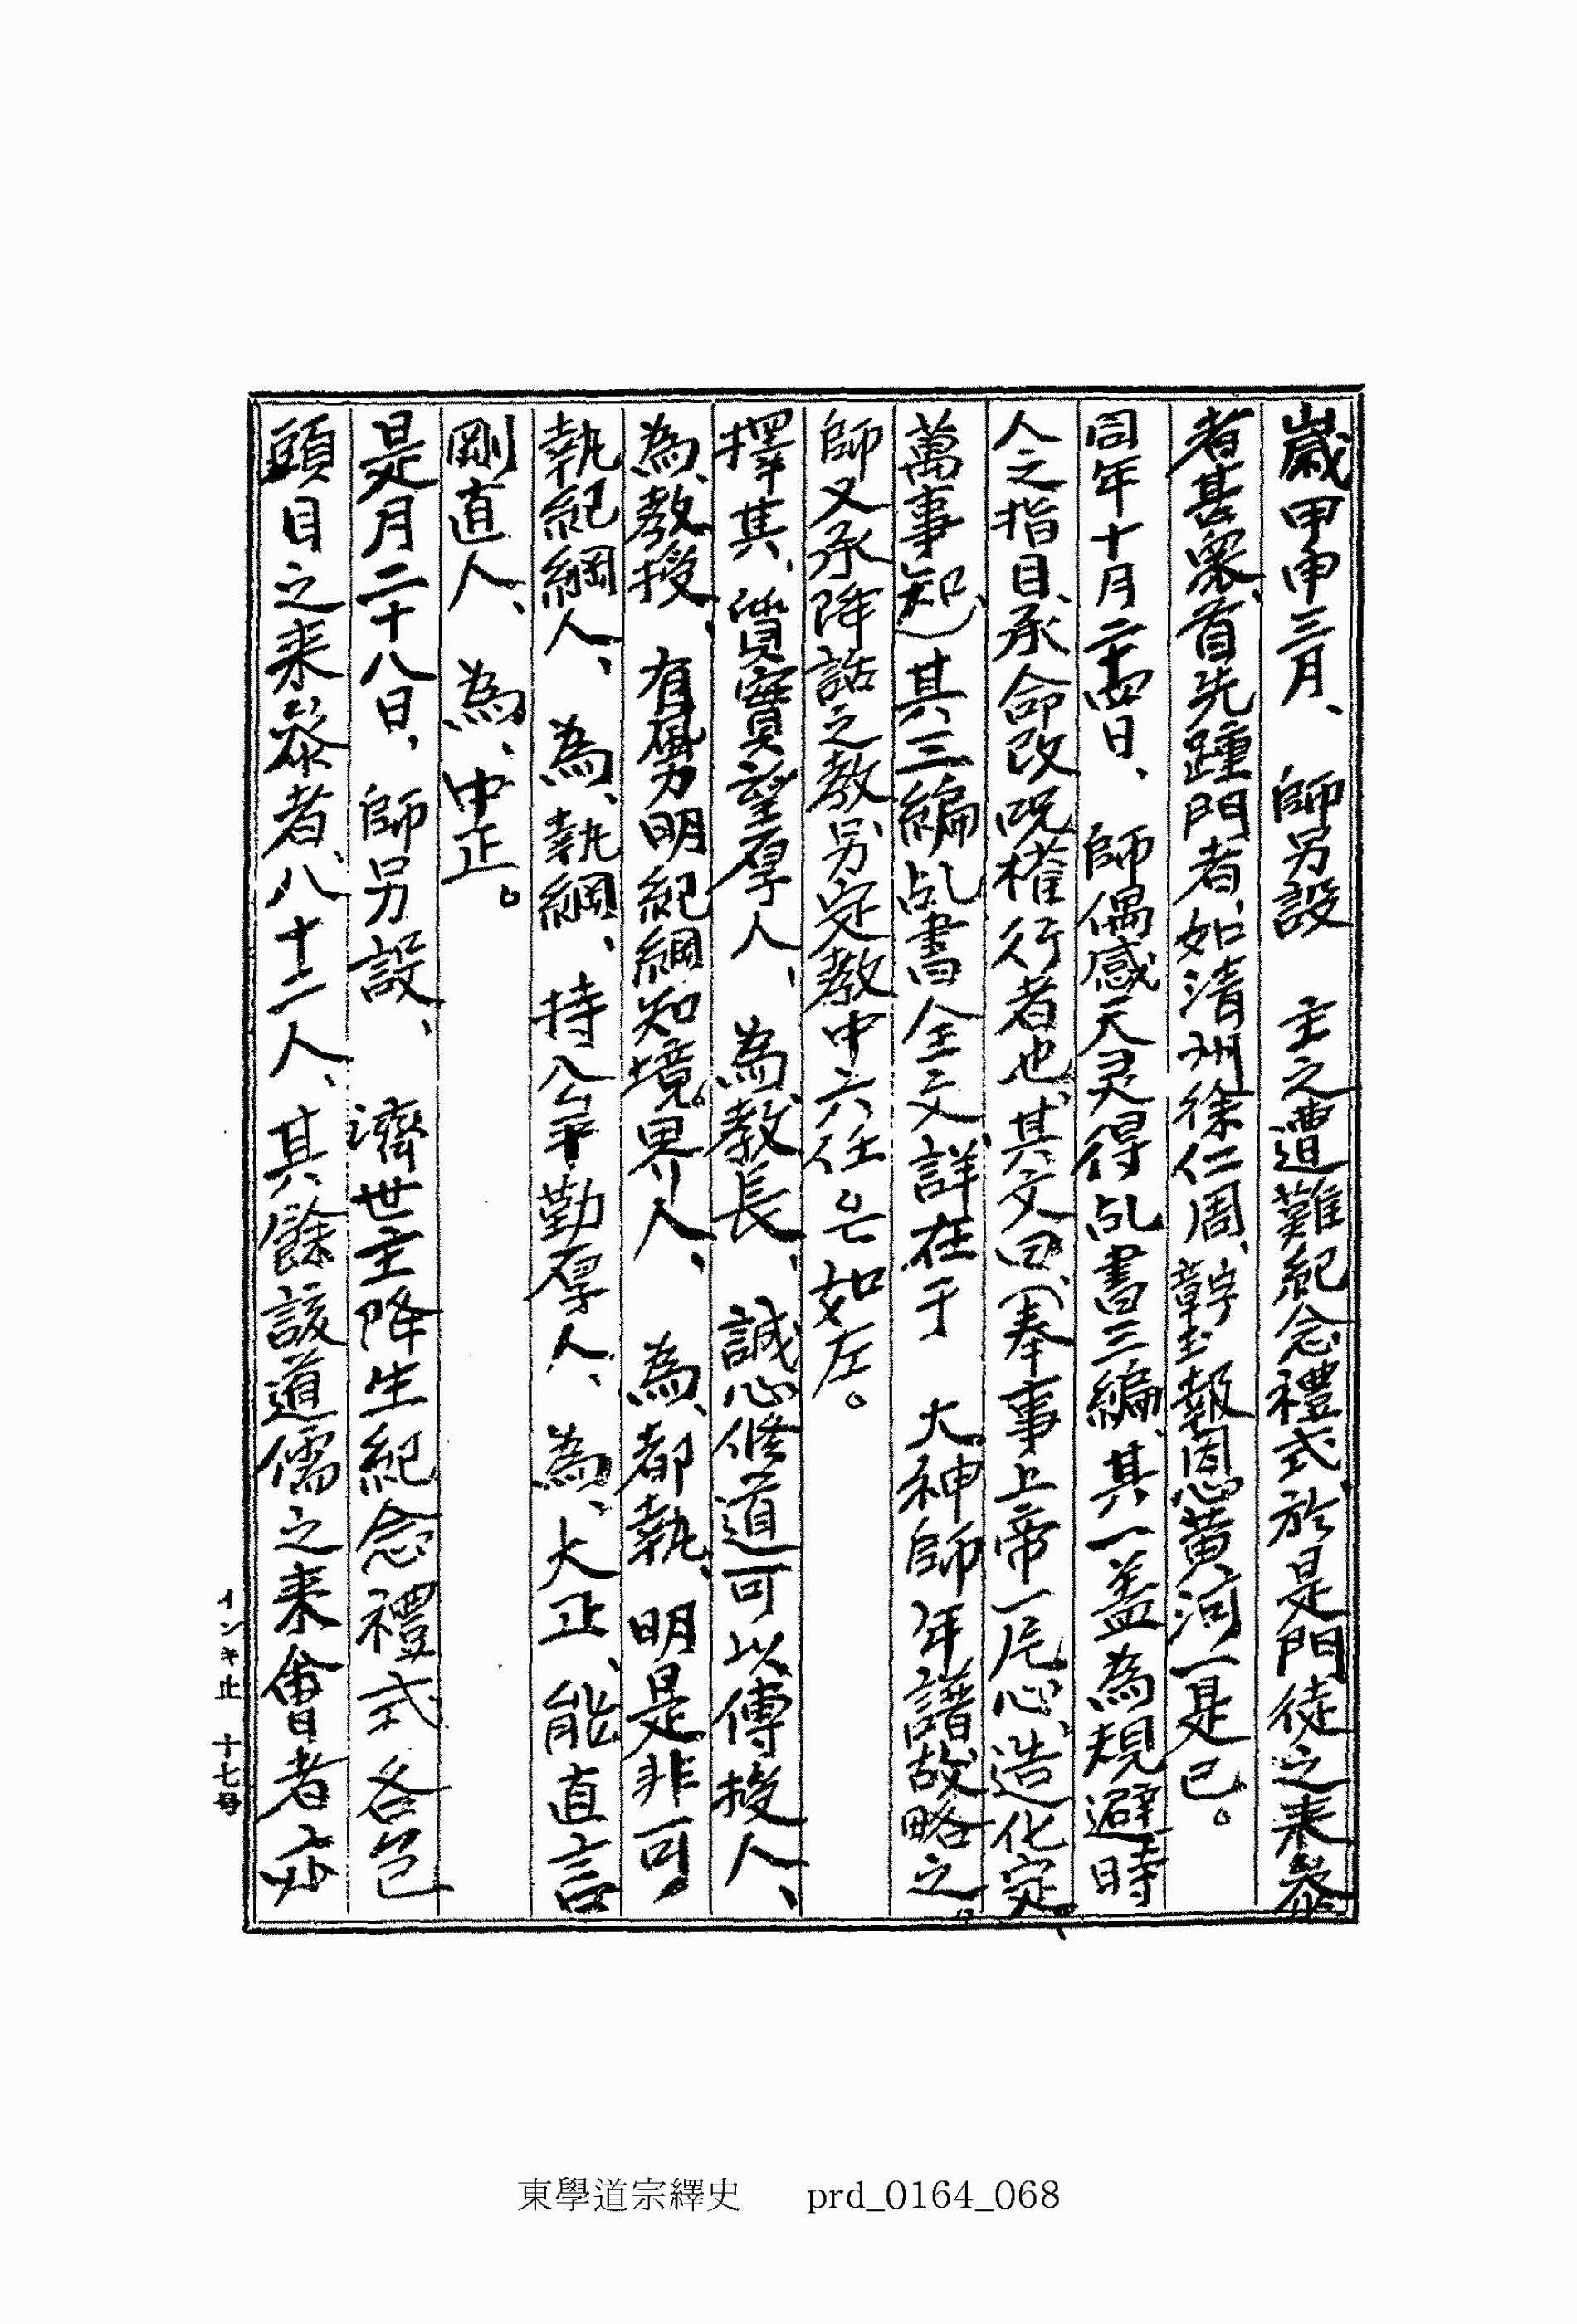 歲甲申三月、 師另設 主之遭難紀念禮式、於是門徒之来叅
者甚衆、首先踵門者、如淸州徐仁周、報恩黃河一是已。
同年十月二十四日、 師偶感天灵得乩書三編、其一盖為規避時
人之指目、承命改呪權行者也、其文曰、(奉事上帝一片心、造化定
萬事知)其三編乩書全文、詳在于 大神師年譜故略之。
師又承降話之敎、另定敎中六任 如左。
擇其、質實望厚人、 為敎長、 誠心修道可以傳授人、
為、敎授、 有風力明紀綱知境界人、 為、都執、明是非可
執紀綱人、 為、執綱、 持公平勤厚人、 為、大正、能直言
剛直人、 為、中正。
是月二十八日、 師另設、 濟世主降生紀念禮式、各包
頭目之来叅者、八十二人、其餘該道儒之来會者、亦
インキ止 十七号
東學道宗繹史 prd_0164_068